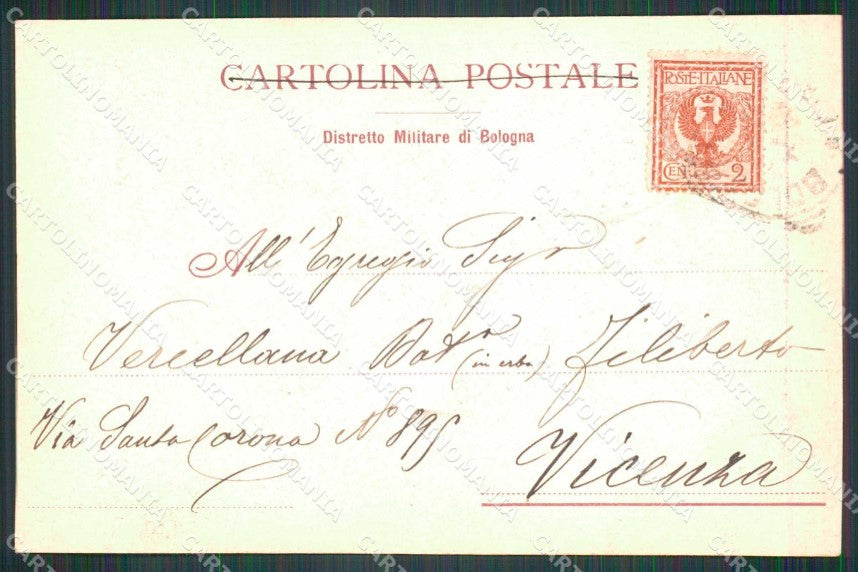 CARTOLINA POSTALE
POSTE·ITALIANE
CEN. 2
Distretto Militare di Bologna
All'Egregio Sigr
Vercellana Dottr (in erba) Filiberto
Via Santa Corona No 895
Vicenza
CARTOLINOMANIA